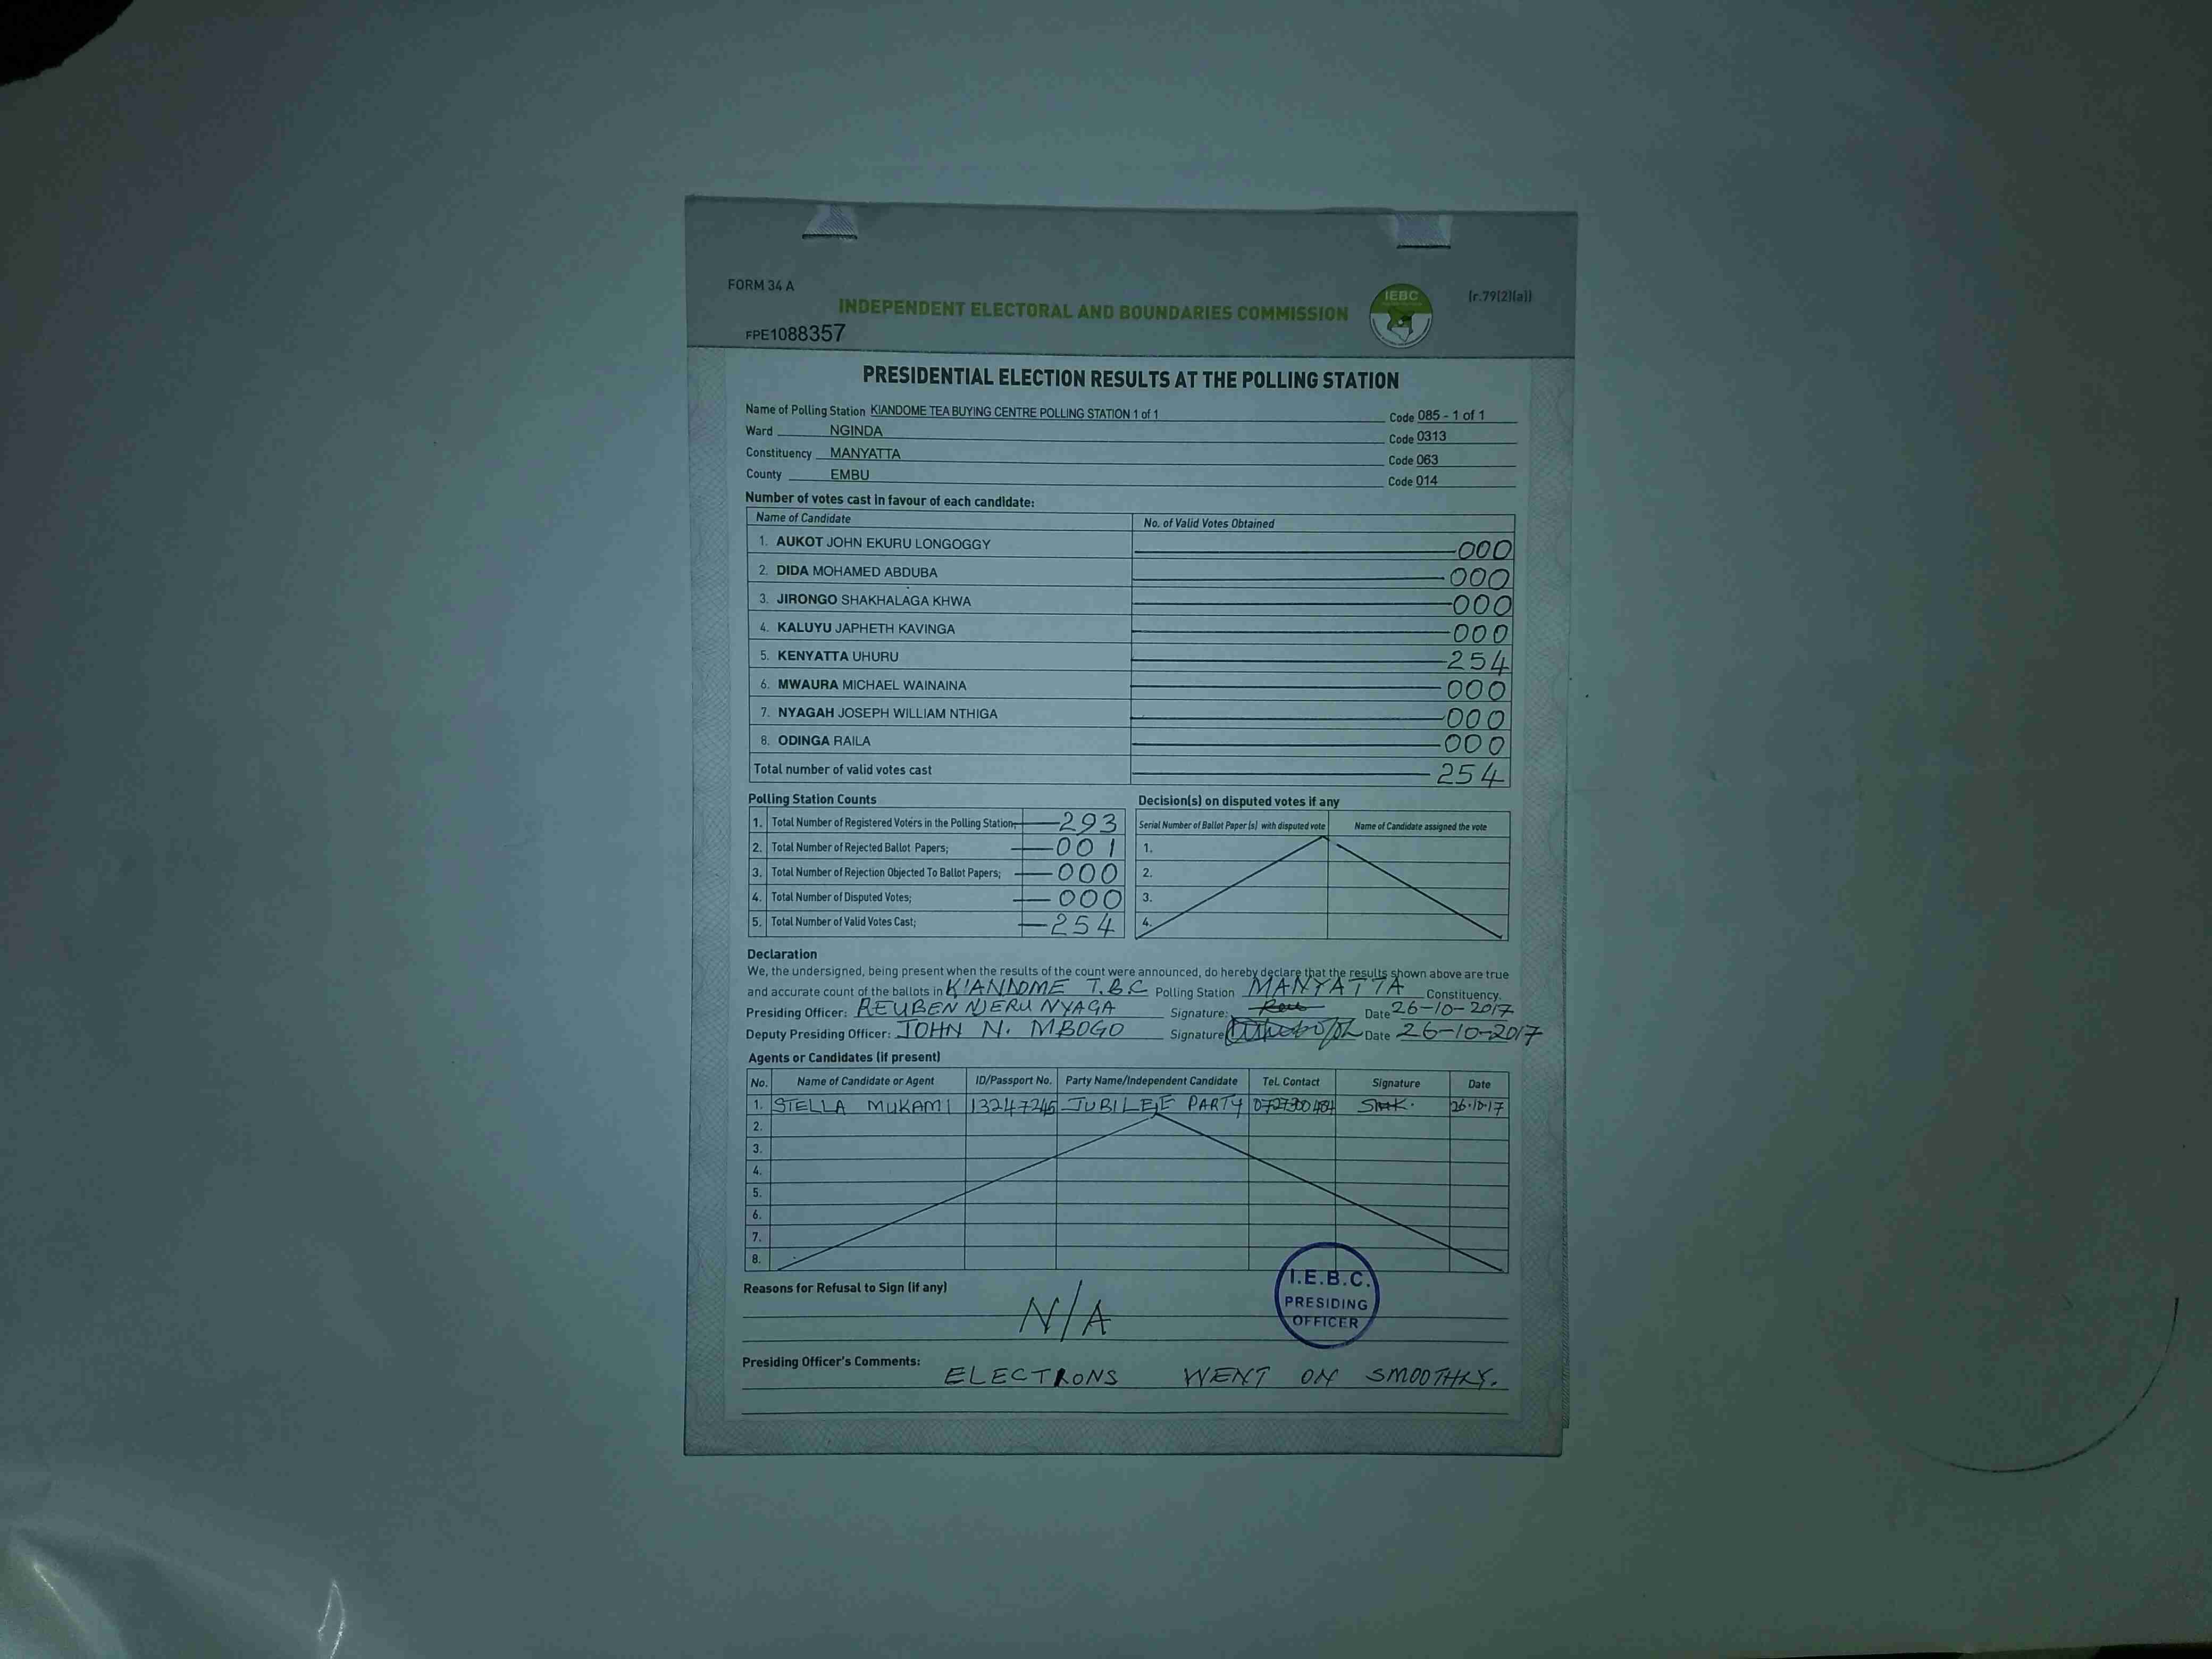 FORM 34 A
INDEPENDENT ELECTORAL AND BOUNDARIES COMMISSION
IEBC
(r.79(2)(a))
FPE1088357
PRESIDENTIAL ELECTION RESULTS AT THE POLLING STATION
Name of Polling Station KIANDOME TEA BUYING CENTRE POLLING STATION 1 of 1 Code 085 - 1 of 1
Ward NGINDA Code 0313
Constituency MANYATTA Code 063
County EMBU Code 014
Number of votes cast in favour of each candidate:
Name of Candidate No. of Valid Votes Obtained
1. AUKOT JOHN EKURU LONGOGGY 000
2. DIDA MOHAMED ABDUBA 000
3. JIRONGO SHAKHALAGA KHWA 000
4. KALUYU JAPHETH KAVINGA 000
5. KENYATTA UHURU 254
6. MWAURA MICHAEL WAINAINA 000
7. NYAGAH JOSEPH WILLIAM NTHIGA 000
8. ODINGA RAILA 000
Total number of valid votes cast 254
Polling Station Counts
1. Total Number of Registered Voters in the Polling Station; 293
2. Total Number of Rejected Ballot Papers; 001
3. Total Number of Rejection Objected To Ballot Papers; 000
4. Total Number of Disputed Votes; 000
5. Total Number of Valid Votes Cast; 254
Decision(s) on disputed votes if any
Serial Number of Ballot Paper (s) with disputed vote Name of Candidate assigned the vote
1.
2.
3.
4.
Declaration
We, the undersigned, being present when the results of the count were announced, do hereby declare that the results shown above are true
and accurate count of the ballots in K'ANDOME T.B.C Polling Station MANYATTA Constituency.
Presiding Officer: REUBEN NJERU NYAGA Signature: Date 26-10-2017
Deputy Presiding Officer: JOHN N. MBOGO Signature Date 26-10-2017
Agents or Candidates (if present)
No. Name of Candidate or Agent ID/Passport No. Party Name/Independent Candidate Tel. Contact Signature Date
1. STELLA MUKAMI 13247245 JUBILEE PARTY 26.10.17
2.
3.
4.
5.
6.
7.
8.
Reasons for Refusal to Sign (if any)
N/A
I.E.B.C.
PRESIDING
OFFICER
Presiding Officer's Comments:
ELECTRONS WENT ON SMOOTHLY.